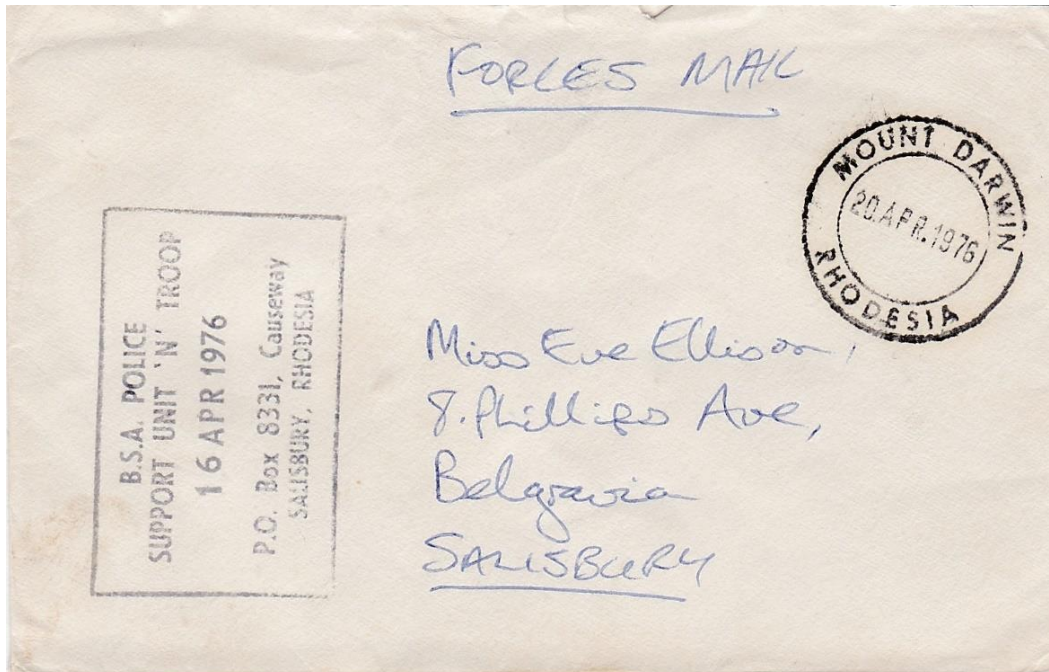 FORCES MAIL
MOUNT DARWIN
20.APR.1976
RHODESIA
B.S.A. POLICE
SUPPORT UNIT 'N' TROOP
16 APR 1976
P.O. Box 8331, Causeway
SALISBURY, RHODESIA
Miss Eve Ellison,
8. Phillips Ave,
Belgravia
SALISBURY